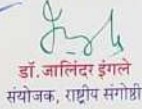 डॉ.जालिंदर इंगले
संयोजक, राष्ट्रीय संगोष्ठी